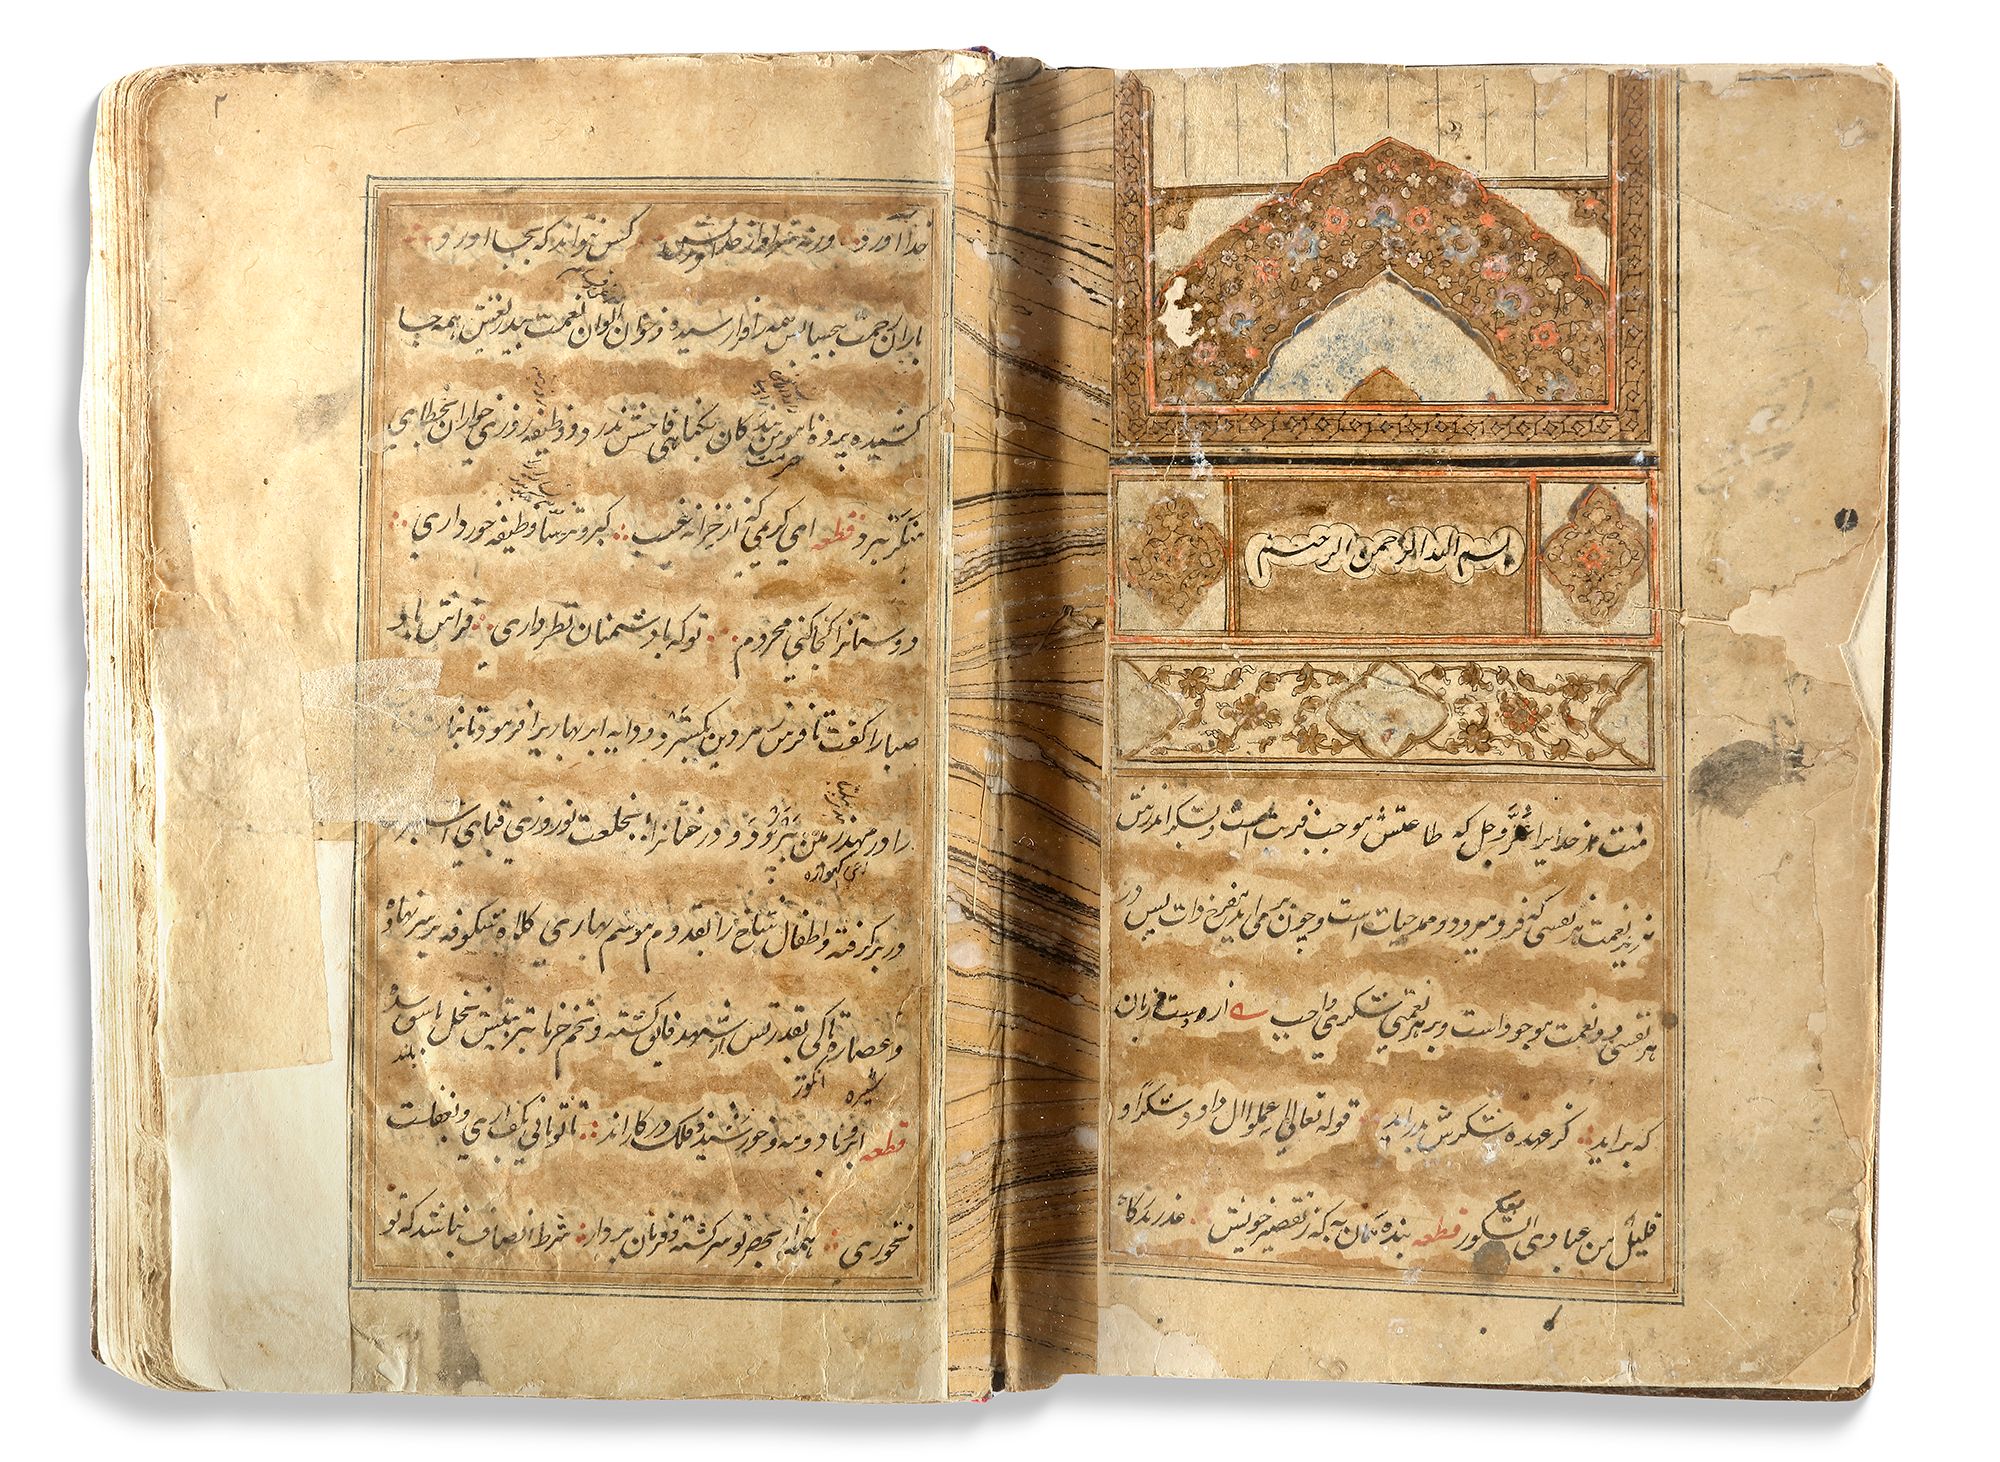 بسم الله الرحمن الرحيم
منت مر خدايرا عَزَّ وجل كه طاعتش موجب قربت است و بشكر اندرش
مزيد نعمت هر نفسى كه فرو ميرود ممد حيات است و چون بر مى ايد مفرح ذات پس در
هر نفسى دو نعمت موجود است و بر هر نعمتى شكرى واجب از دست و زبان
كه برايد كز عهده شكرش بدر ايد قوله تعالى اعملوا ال داود شكراً و
قليل من عبادى الشكور قطعه بنده همان به كه ز تقصير خويش عذر بدركاه
٢
خدا آورد ورنه سزاوار خداونديش كس نتواند كه بجا اورد
باران رحمت بيحسابش همه را فرا رسيده و خوان الوان نعمت بيدريغش همه جا
كشيده پرده ناموس بندكان بكناه فاحش ندرد و وظيفه روزى خواران بخطاى
منكر نبرد قطعه اى كريمى كه از خزانه غيب كبر و ترسا وظيفه خور دارى
دوستانرا كجا كنى محروم تو كه با دشمنان نظر دارى فراش باد
صبا را كفت تا فرش زمردين بكسترد و دايه ابر بهاريرا فرمود تا بنات
را در مهد زمين بپرورد و درختانرا بخلعت نوروزى قباى
در بر كرفته و اطفال شاخ را بقدوم موسم بهارى كلاه شكوفه بر سر نهاده
و عصاره تاكى بقدرتش شهد فايق كشته و تخم خرما بتربيتش نخل باسق شده
شيره انكور بلند
قطعه ابر و باد و مه و خورشيد و فلك در كاراند تا تو نانى بكف ارى و بغفلت
نخورى همه از بهر تو سركشته و فرمان بردار شرط انصاف نباشد كه تو